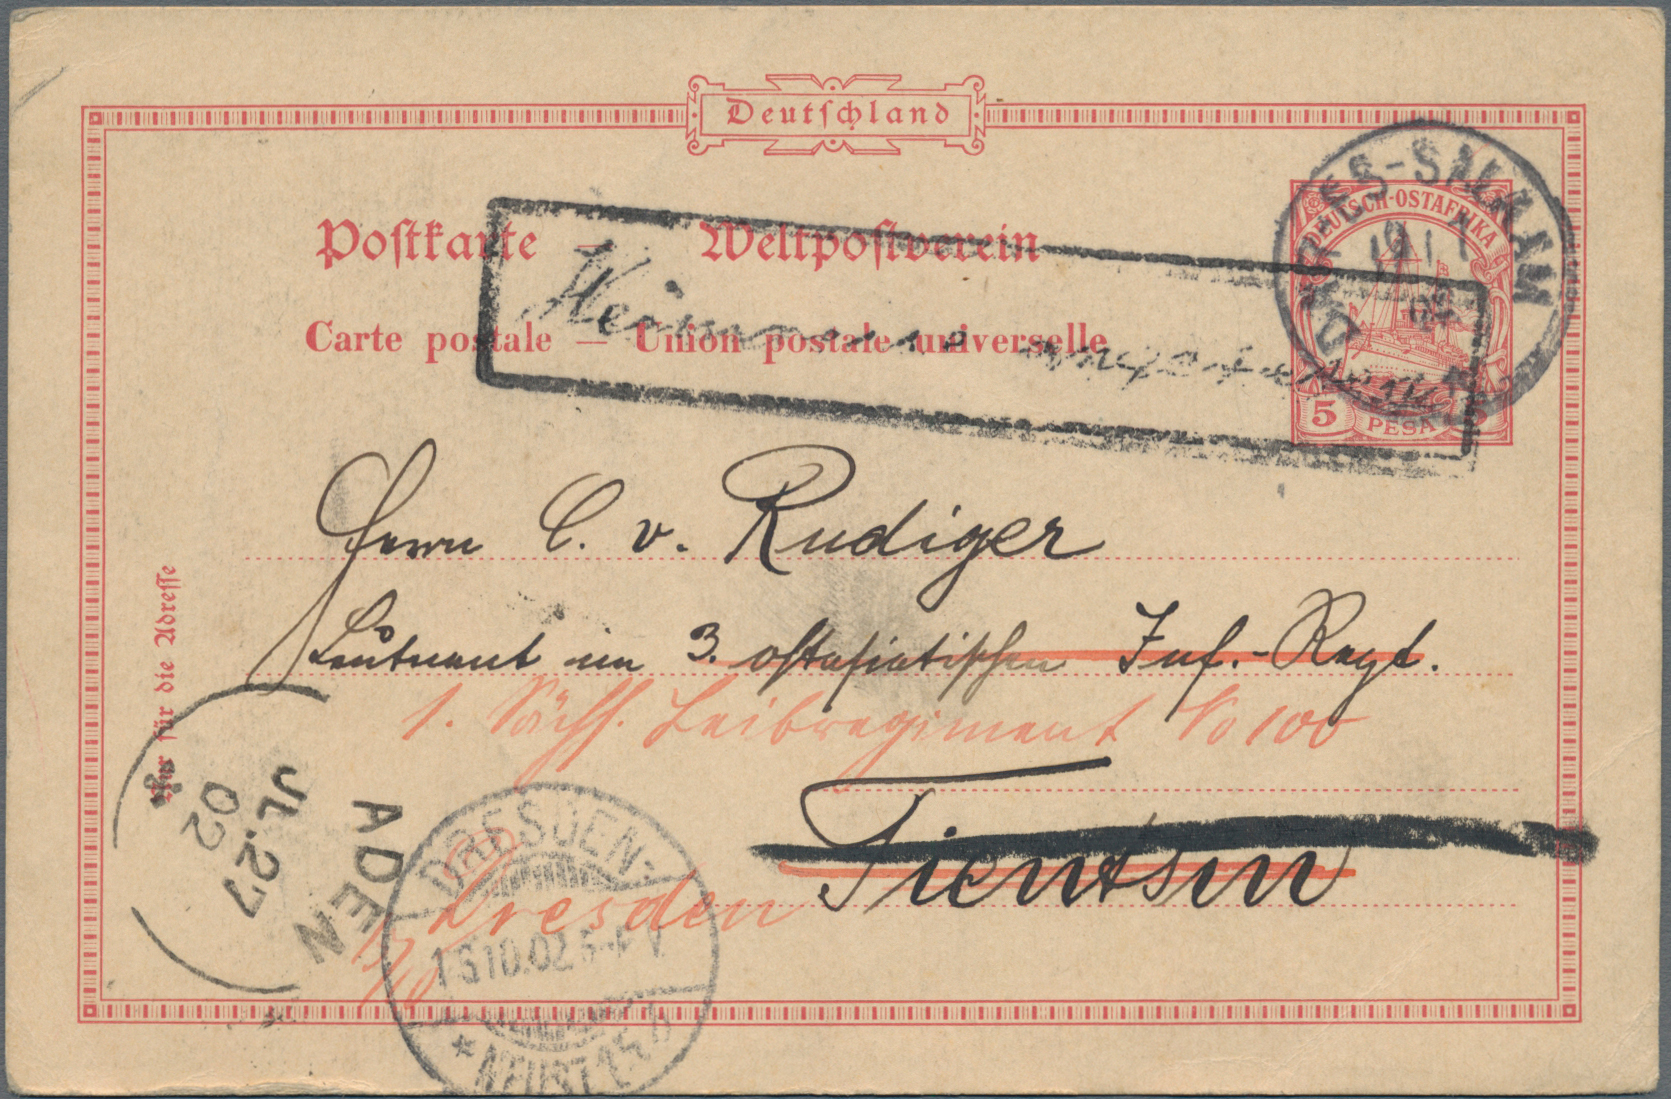 Deutschland
Postkarte – Weltpostverein
Carte postale – Union postale universelle
DEUTSCH-OSTAFRIKA
5 PESA 5
DAR-ES-SALAAM
Herrn C. v. Rudiger
Leutnant im 3. ostasiatischen Inf.-Regt.
1. Sächs. Leibregiment No 100
Tientsin
Dresden
Nur für die Adresse
ADEN
JL.27
02
DRESDEN-
10.02